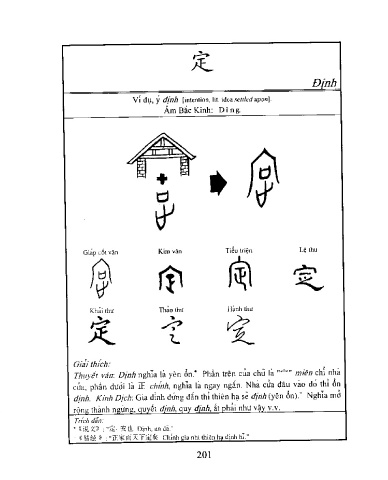 定
Định
Ví dụ, ý định [intention, lit. idea settled upon].
Âm Bắc Kinh: Ding
Giáp cốt văn Kim văn Tiểu triện Lệ thư
Khải thư Thảo thư Hành thư
定
Giải thích:
Thuyết văn: Định nghĩa là yên ổn.* Phần trên của chữ là "宀" miên chỉ nhà
cửa, phần dưới là 正 chính, nghĩa là ngay ngắn. Nhà cửa đâu vào đó thì ổn
định. Kinh Dịch: Gia đình đứng đắn thì thiên hạ sẽ định (yên ổn).* Nghĩa mở
rộng thành ngừng, quyết định, quy định, ắt phải như vậy v.v.
Trích dẫn:
*《說文》: "定, 安也 Định, an dã."
"正家而天下定矣 Chính gia nhi thiên hạ định hĩ."
201